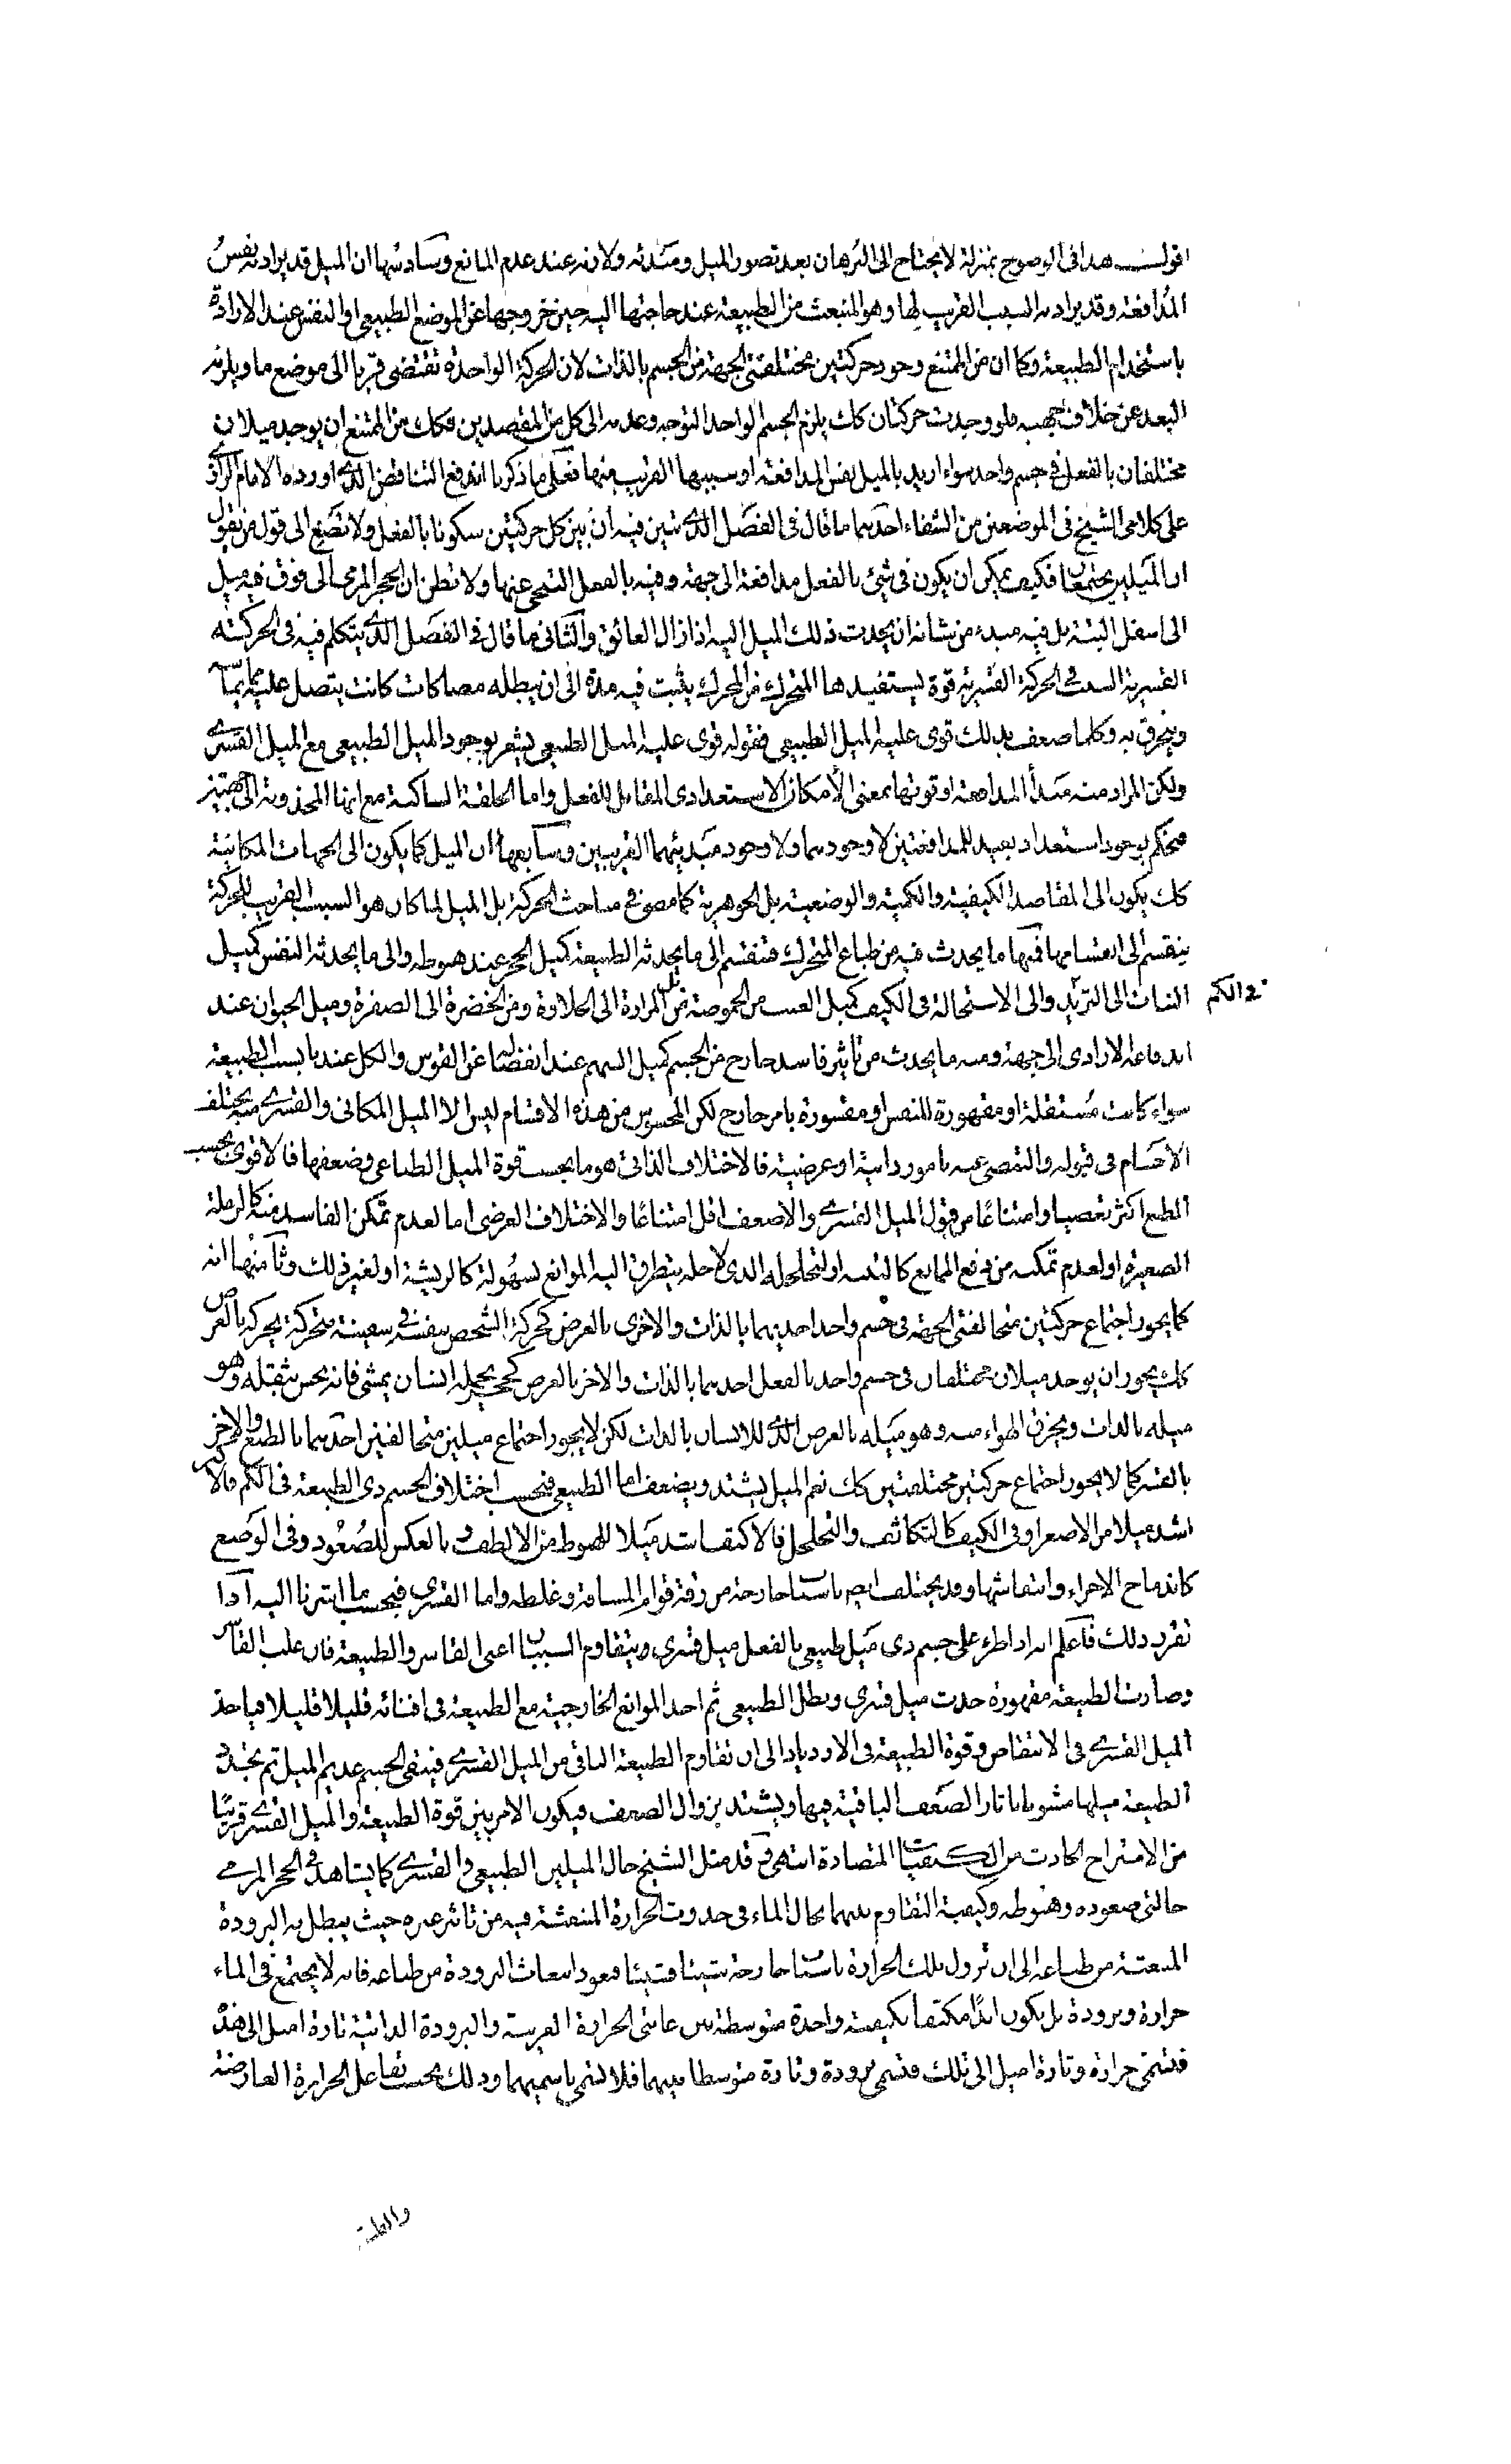 اقول هذا في الوضوح بمنزلة لا يحتاج الى البرهان بعد تصور الميل ومبدئه ولازمه عند عدم المانع وسادسها ان الميل قد يراد به نفس
المدافعة وقد يراد به السبب القريب لها وهو المنبعث من الطبيعة عند حاجتها اليه حين خروجها عن الموضع الطبيعي او النفس عند الارادة
باستخدام الطبيعة وكما ان من الممتنع وجود حركتين مختلفتى الجهة من الجسم بالذات لان الحركة الواحدة تقتضى قربا الى موضع ما ويلزمه
البعد عن خلاف جهته فلو وجدت حركتان كك يلزم الجسم الواحد التوجه وعدمه الى كل من المقصدين فكك من الممتنع ان يوجد ميلان
مختلفان بالفعل في جسم واحد سواء اريد بالميل نفس المدافعة او سببها القريب منها فعلى ما ذكرنا اندفع التناقض الذي اورده الامام الرازي
على كلامى الشيخ في الموضعين من الشفاء احدهما ما قال في الفصل الذي تبين فيه ان بين كل حركتين سكونا بالفعل ولا تصغ الى قول من يقول
ان الميلين يجتمعان فكيف يمكن ان يكون في شئ بالفعل مدافعة الى جهة وفيه بالفعل التنحى عنها ولا تظن ان الحجر المرمى الى فوق فيه ميل
الى اسفل البتة بل فيه مبدء من شانه ان يحدث ذلك الميل اليه اذا زال العائق والثانى ما قال في الفصل الذي يتكلم فيه في الحركة
القسرية السبب في الحركة القسرية قوة يستفيدها المتحرك من المحرك يثبت فيه مدة الى ان يبطله مصاكات كانت يتصل عليه مما يماسه
وينخرق به وكلما ضعف بذلك قوى عليه الميل الطبيعي فقوله قوى عليه الميل الطبيعي يشعر بوجود الميل الطبيعي مع الميل القسري
ولكن المراد منه مبدأ المدافعة او قوتها بمعنى الامكان الاستعدادى المقابل للفعل واما الحلقة الساكنة مع انها المجذوبة الى جهتين
فنحكم بوجود استعداد بعيد للمدافعتين لا وجودهما ولا وجود مبدئيهما القريبين وسابعها ان الميل كما يكون الى الجهات المكانية
كك يكون الى المقاصد الكيفية والكمية والوضعية بل الجوهرية كما مضى في مباحث الحركة بل الميل لما كان هو السبب القريب للحركة
ينقسم الى اقسامها فمنها ما يحدث فيه من طباع المتحرك فتنقسم الى ما يحدثه الطبيعة كميل الحجر عند هبوطه والى ما يحدثه النفس كميل
النبات الى التزيد في الكم والى الاستحالة في الكيف كميل العنب من الحموضة بل من المرارة الى الحلاوة ومن الخضرة الى الصفرة وميل الحيوان عند
اندفاعه الارادى الى جهة ومنه ما يحدث من تاثير قاسر خارج من الجسم كميل السهم عند انفصاله عن القوس والكل عندنا بسبب الطبيعة
سواء كانت مستقلة او مقهورة للنفس او مقسورة بامر خارج لكن المحسوس من هذه الاقسام ليس الا الميل المكانى والقسري منه يختلف
الاجسام في قبوله والتعصى عنه بامور ذاتية او عرضية فالاختلاف الذاتى هو ما بحسب قوة الميل الطباعى وضعفها فالاقوى بحسب
الطبع اكثر تعصيا وامتناعا من قبول الميل القسري والاضعف اقل امتناعا والاختلاف العرضى اما لعدم تمكن القاسر منه كالرملة
الصغيرة او لعدم تمكنه من دفع الممانع كالتبنه او لتخلخله الذى لاجله يتطرق اليه الموانع بسهولة كالريشة او لغير ذلك وثامنها انه
كما يجوز اجتماع حركتين متخالفتى الجهة في جسم واحد احديهما بالذات والاخرى بالعرض كحركة الشخص بنفسه في سفينة متحركة بحركة بالعرض
كك يجوز ان يوجد ميلان مختلفان في جسم واحد بالفعل احدهما بالذات والاخر بالعرض كحجر يحمله انسان يمشى فانه يحس بثقله وهو
ميله بالذات وينخرق الهواء منه وهو ميله بالعرض الذي للانسان بالذات لكن لا يجوز اجتماع ميلين متخالفين احدهما بالطبع والاخر
بالقسر كما لا يجوز اجتماع حركتين مختلفتين كك نعم الميل يشتد ويضعف اما الطبيعي فبحسب اختلاف الجسم ذى الطبيعة في الكم فالاكبر
اشد ميلا من الاصغر او في الكيف كالتكاثف والتخلخل فالاكثف اشد ميلا للهبوط من الالطف وبالعكس للصعود وفي الوضع
كاندماج الاجزاء وانتفاشها وقد يختلف ايضا باسباب خارجة من رقة قوام المسافة وغلظه واما القسري فبحسب ما اشرنا اليه اذا
تقرر ذلك فاعلم انه اذا طرء على جسم ذى ميل طبيعي بالفعل ميل قسرى ويتقاوم السببان اعنى القاسر والطبيعة فان غلب القاسر
وصارت الطبيعة مقهورة حدث ميل قسرى وبطل الطبيعي ثم اخذ الموانع الخارجية مع الطبيعة في افنائه قليلا قليلا فياخذ
الميل القسري في الانتقاص وقوة الطبيعة في الازدياد الى ان تقاوم الطبيعة الباقى من الميل القسري فيبقى الجسم عديم الميل ثم تجدد
الطبيعة ميلها مشوبا باثار الضعف الباقية فيها ويشتد بزوال الضعف فيكون الامر بين قوة الطبيعة والميل القسري قريبا
من الامتزاج الحادث من الكيفيات المتضادة انتهى وقد مثل الشيخ حال الميلين الطبيعي والقسري كما يشاهد في الحجر المرمى
حالتى صعوده وهبوطه وكيفية التقاوم بينهما بحال الماء في حدوث الحرارة المنبعثة فيه من تاثير غيره حيث يبطل به البرودة
المنبعثة من طباعه الى ان تزول تلك الحرارة باسباب خارجة شيئا فشيئا فيعود انبعاث البرودة من طباعه فانه لا يجتمع في الماء
حرارة وبرودة بل يكون ابدا مكيفا بكيفية واحدة متوسطة بين غايتى الحرارة الغريبة والبرودة الذاتية تارة اميل الى هذه
فتسمى حرارة وتارة اميل الى تلك فتسمى برودة وتارة متوسطا بينهما فلا تسمى باسميهما وذلك بحسب تفاعل الحرارة العارضة